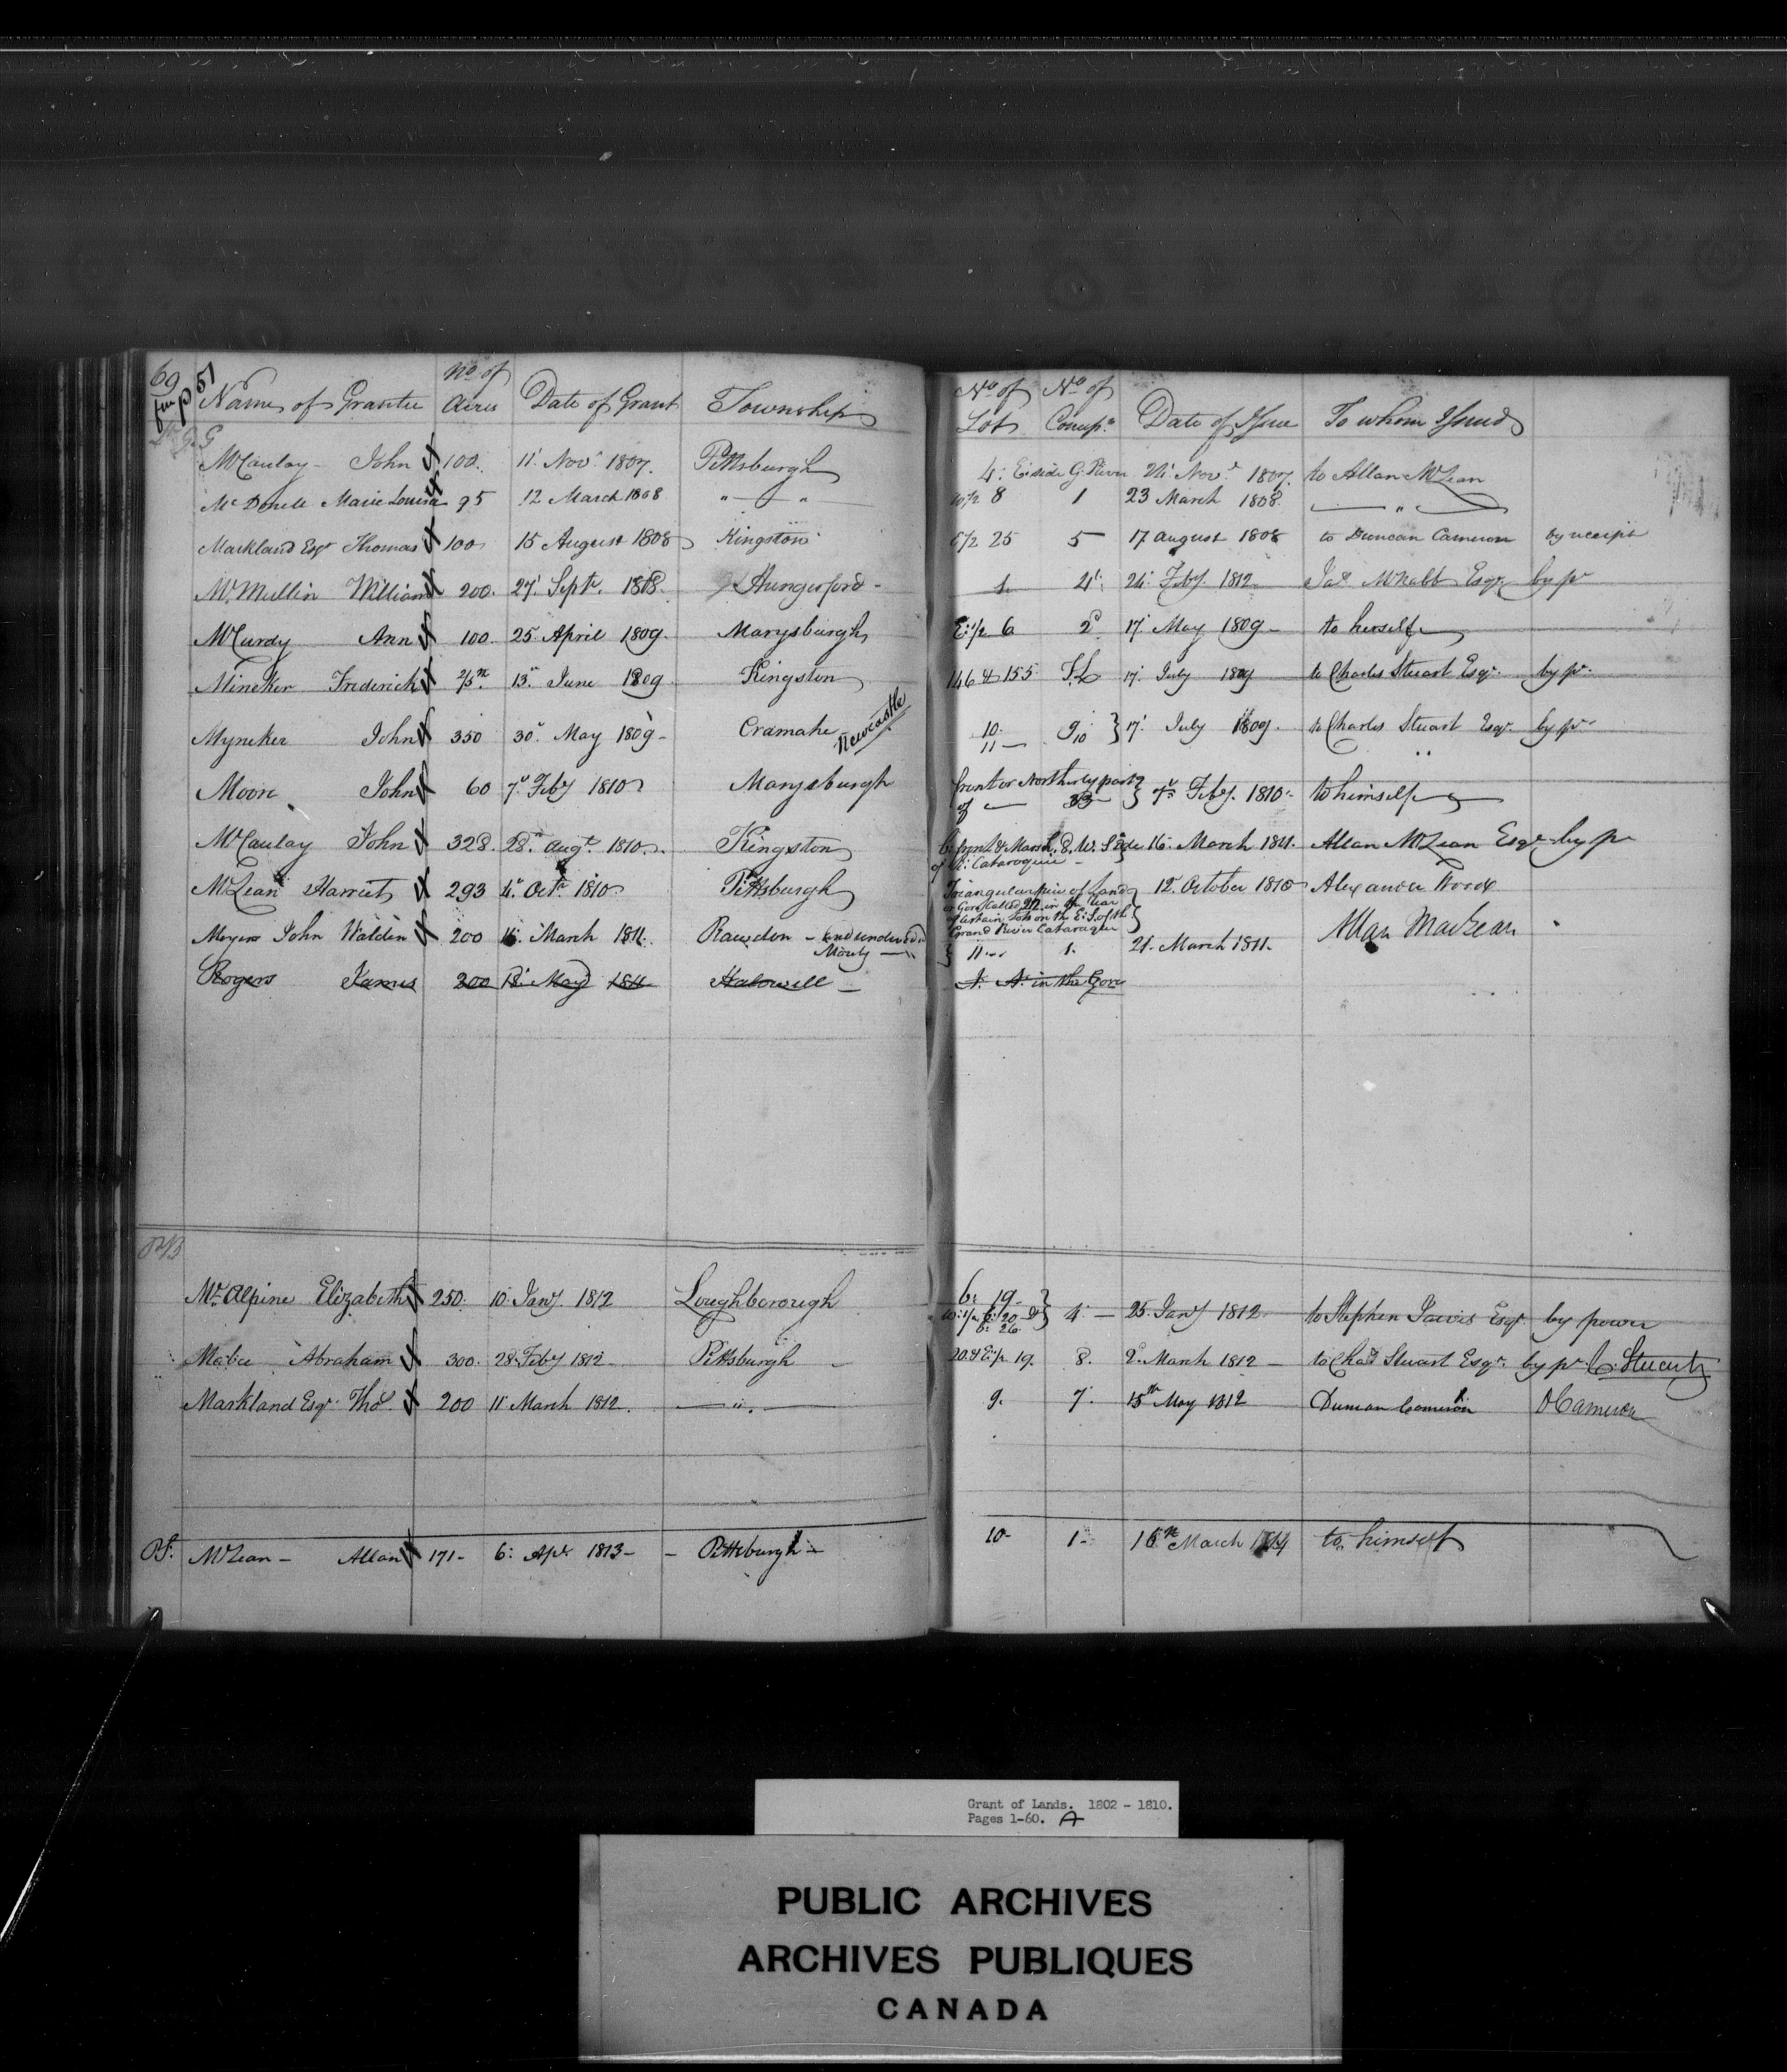 69
fm p 51
Names of Grantee No. of Acres Date of Grant Township No. of Lot No. of Date of Issue To whom Issued
McCaulay John 100. 11 Novr. 1807. Pittsburgh 4: E: side G. River 24 Novr. 1807. to Allan McLean
Mc Donell Marie Louisa 95 12 March 1808 " — " 8 1 23 March 1808. — " —
Markland Esqr Thomas 100 15 August 1808 Kingston 25 5 17 august 1808 to Duncan Cameron by receipt
McMullin William 200. 27 Septr. Hungerford - 24 Feby. 1812 Jas. McNabb Esqr by pr
McCurdy Ann 100. 25 April 1809. Marysburgh E: 1/2 6 2d. 17 May 1809 - to herself
Mineker Frederick 13 June 1809 Kingston 146 & 155 17 July 1809 to Charles Stuart Esqr. by pr.
Myneker John 350 30 May 1809 - Cramahe Newcastle 10. 9 } 17 July 1809. to Charles Stuart Esqr. by pr
11 — 10
Moore John 60 7 Feby 1810 Marysburgh front or Northerly part
of — 33 } 7 Feby. 1810 - to himself
McCaulay John 328. 28 augt. 1810. Kingston W. Side 16 March 1811. Allan McLean Esqr by pr
of R: Cataroquie -
McLean Harriet 293 4 Octr 1810 Pittsburgh Triangular piece of Land 12 October 1810 Alexander Wood
or Gore called in the rear
of certain Lots on the E: S. of the
Grand River Cataraqui
Meyers John Walden 200 16 March 1811. Rawdon - 11 1. 21. March 1811. Allan MacLean
Rogers James 200 18 May 1811 Halowell — A. in the Gore
McAlpine Elizabeth 250. 10 Jany. 1812 Loughborough 6: 19 - } 4 — 25 Jany 1812 to Stephen Jarvis Esqr. by power
Mabee Abraham 300. 28 Feby 1812 - Pittsburgh - 20 & E: p 19. 8. 2 March 1812 — to Chas Stuart Esqr. by pr. C: Stuart
Markland Esqr. Thos. 200 11 March 1812. — " — 9. 7. 15th May 1812 Duncan Cameron DCameron
McLean - Allan 171 - 6: Apr. 1813 - - Pittsburgh - 10 - 1 - 16th March 1814 to himself
Grant of Lands. 1802 - 1810.
Pages 1-60. A
PUBLIC ARCHIVES
ARCHIVES PUBLIQUES
CANADA